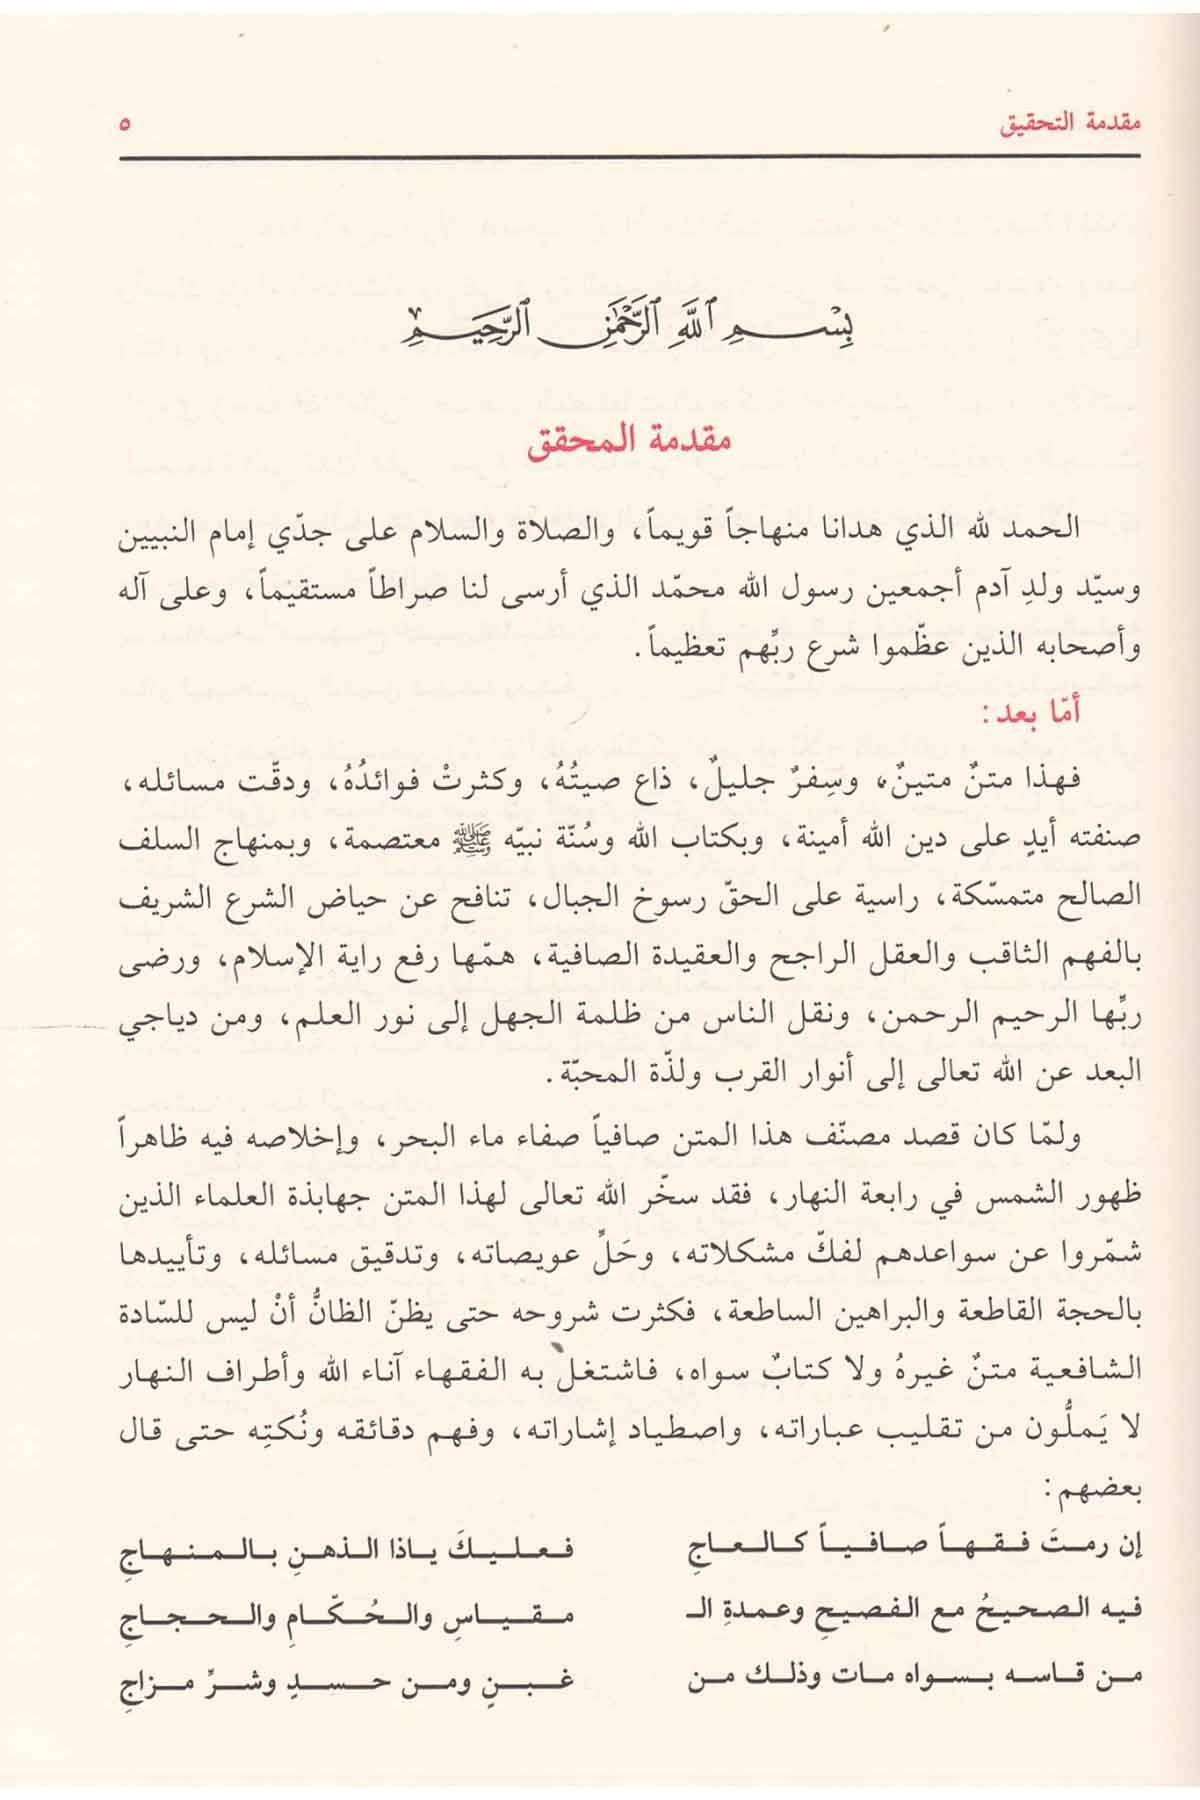 مقدمة التحقيق
٥
بِسْمِ ٱللَّهِ ٱلرَّحْمَٰنِ ٱلرَّحِيمِ
مقدمة المحقق
الحمد لله الذي هدانا منهاجاً قويماً، والصلاة والسلام على جدّي إمام النبيين
وسيّد ولدِ آدم أجمعين رسول الله محمّد الذي أرسى لنا صراطاً مستقيماً، وعلى آله
وأصحابه الذين عظّموا شرع ربِّهم تعظيماً.
أمّا بعد:
فهذا متنٌ متينٌ، وسِفرٌ جليلٌ، ذاع صيتُهُ، وكثرتْ فوائدُهُ، ودقّت مسائله،
صنفته أيدٍ على دين الله أمينة، وبكتاب الله وسُنّة نبيّه ﷺ معتصمة، وبمنهاج السلف
الصالح متمسّكة، راسية على الحقّ رسوخ الجبال، تنافح عن حياض الشرع الشريف
بالفهم الثاقب والعقل الراجح والعقيدة الصافية، همّها رفع راية الإسلام، ورضى
ربِّها الرحيم الرحمن، ونقل الناس من ظلمة الجهل إلى نور العلم، ومن دياجي
البعد عن الله تعالى إلى أنوار القرب ولذّة المحبّة.
ولمّا كان قصد مصنّف هذا المتن صافياً صفاء ماء البحر، وإخلاصه فيه ظاهراً
ظهور الشمس في رابعة النهار، فقد سخّر الله تعالى لهذا المتن جهابذة العلماء الذين
شمّروا عن سواعدهم لفكّ مشكلاته، وحَلِّ عويصاته، وتدقيق مسائله، وتأييدها
بالحجة القاطعة والبراهين الساطعة، فكثرت شروحه حتى يظنّ الظانُّ أنْ ليس للسّادة
الشافعية متنٌ غيرهُ ولا كتابٌ سواه، فاشتغل به الفقهاء آناء الله وأطراف النهار
لا يَملُّون من تقليب عباراته، واصطياد إشاراته، وفهم دقائقه ونُكتِه حتى قال
بعضهم:
إن رمتَ فقهاً صافياً كالعاجِ فعليكَ ياذا الذهنِ بالمنهاجِ
فيه الصحيحُ مع الفصيحِ وعمدةِ الـ مقياسِ والحُكّامِ والحجاجِ
من قاسه بسواه مات وذلك من غبنٍ ومن حسدٍ وشرِّ مزاجِ